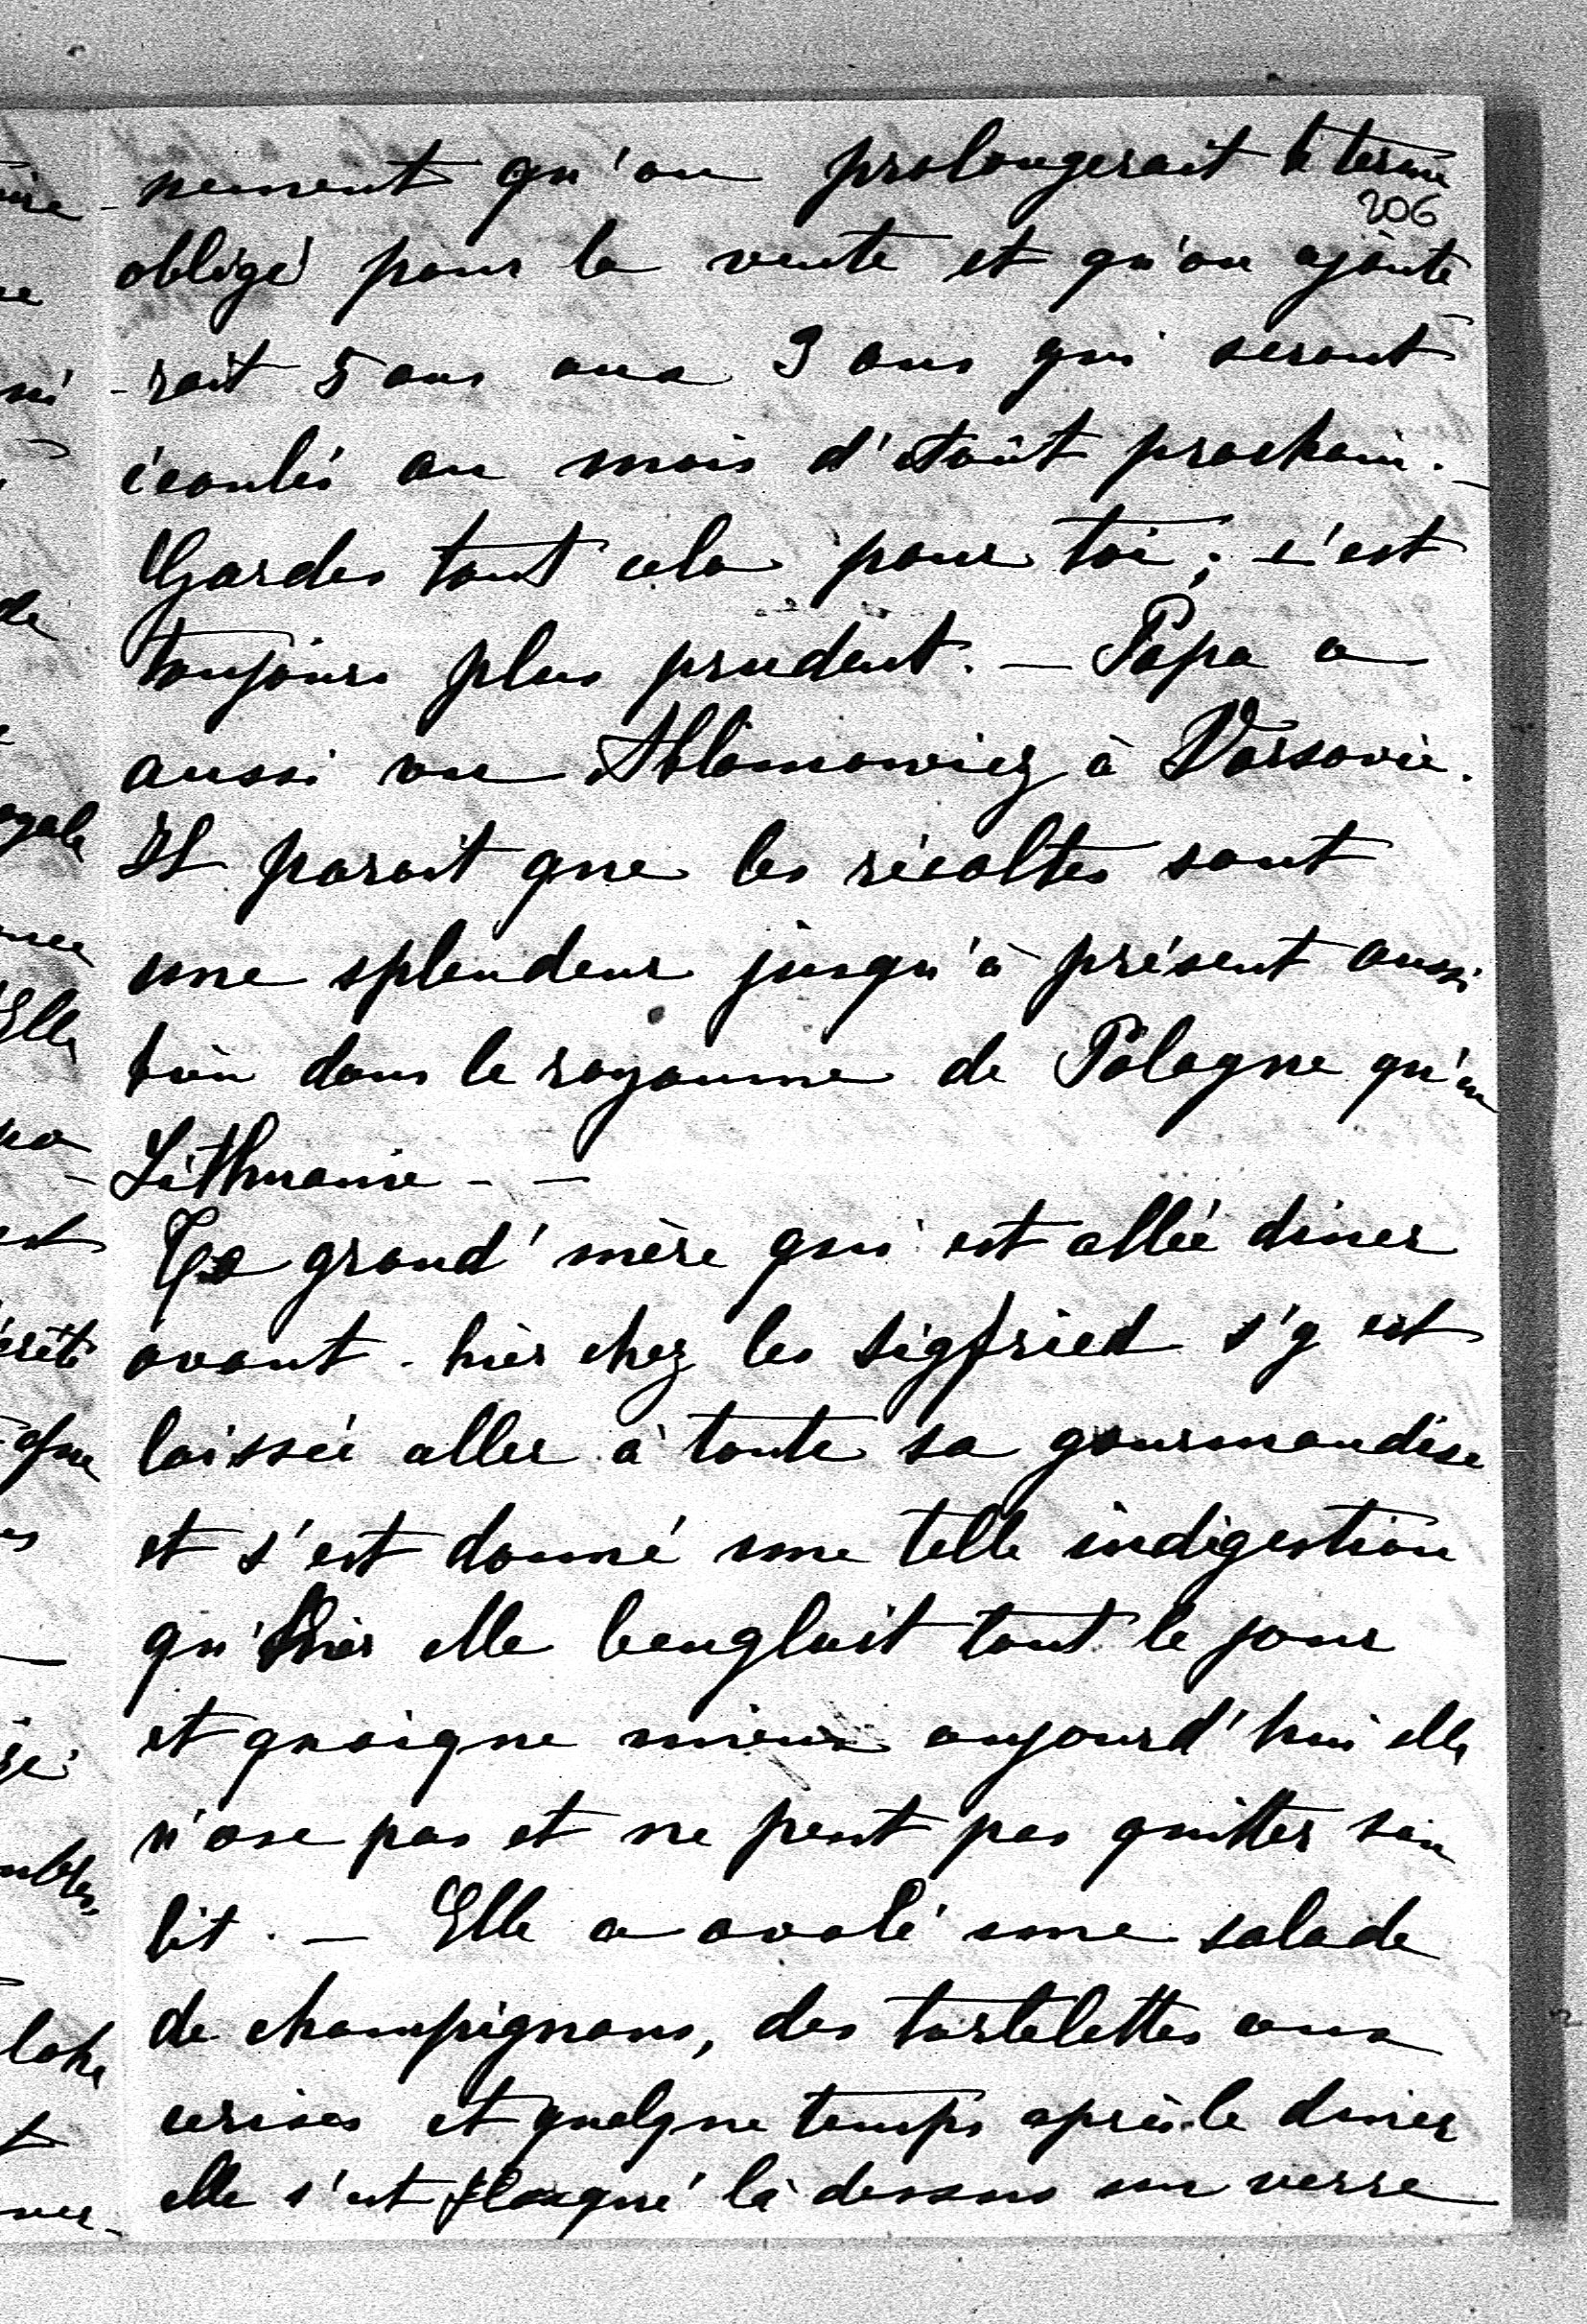 -nement qu'on prolongerait le terme
206
obligé pour la vente et qu'on ajoute
-rait 5 ans aux 3 ans qui seront
écoulés au mois d'Août prochain. -
Gardes tout cela pour toi; c'est
toujours plus prudent. - Papa a
aussi vu Ablamowicz à Varsovie.
Il parait que les récoltes sont
une splendeur jusqu'à présent aussi
bien dans le royaume de Pologne qu'en
Lithuanie - -
Ta grand'mère qui est allée diner
avant-hier chez les Sigfried s'y est
laissée aller à toute sa gourmandise
et s'est donné une telle indigestion
qu'hier elle beuglait tout le jour
et quoique mieux aujourd'hui elle
n'ose pas et ne peut pas quitter son
lit. - Elle a avalé une salade
de champignons, des tartelettes aux
cerises et quelque temps après le diner
elle s'est flanqué là dessus un verre